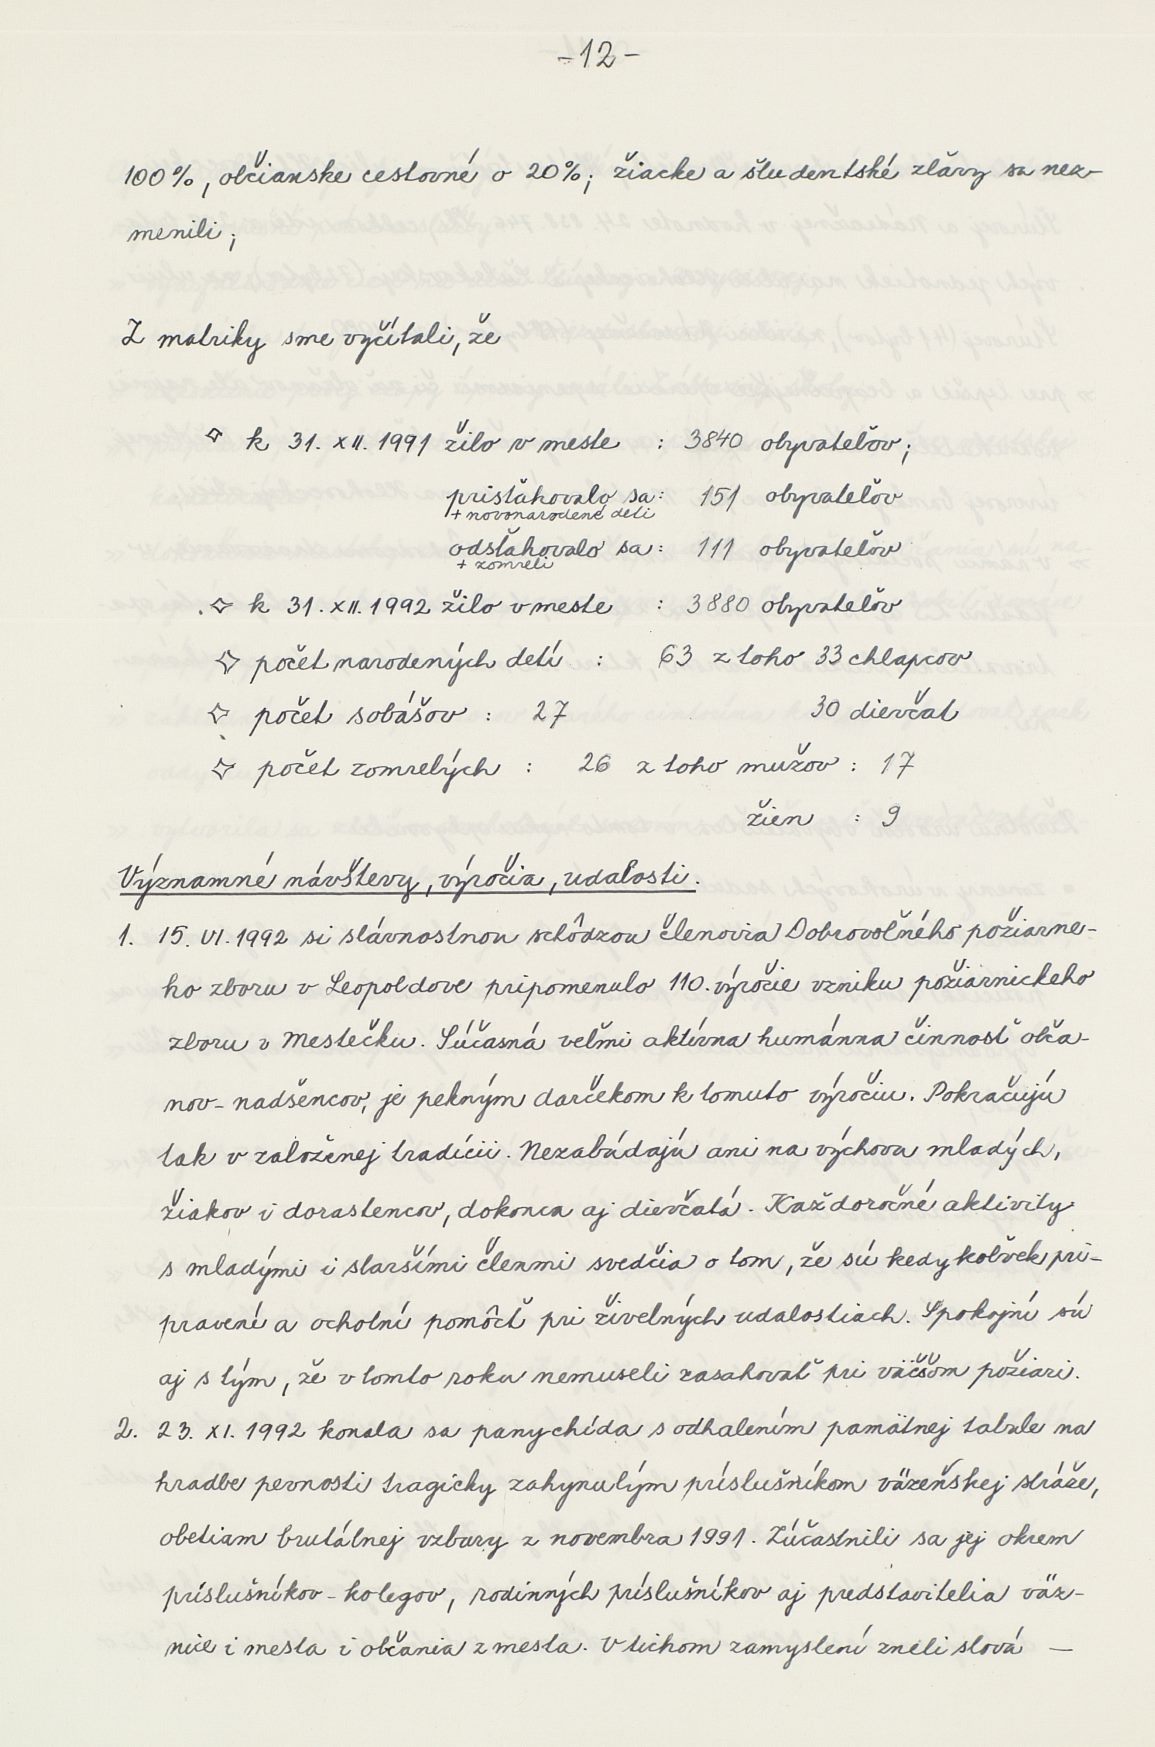 -12-
100%, občianske cestovné o 20%; žiacke a študentské zľavy sa nez-
menili;
Z matriky sme vyčítali, že
k 31. XII. 1991 žilo v meste : 3840 obyvateľov;
prisťahovalo sa: 151 obyvateľov
+ novonarodené deti
odsťahovalo sa: 111 obyvateľov
+ zomreli
k 31. XII. 1992 žilo v meste : 3880 obyvateľov
počet narodených detí : 63 z toho 33 chlapcov
počet sobášov : 27 30 dievčat
počet zomrelých : 26 z toho mužov : 17
žien : 9
Významné návštevy, výročia, udalosti.
1. 15. VI. 1992 si slávnostnou schôdzou členovia Dobrovoľného požiarne-
ho zboru v Leopoldove pripomenulo 110. výročie vzniku požiárnickeho
zboru v Mestečku. Súčasná veľmi aktívna humánna činnosť obča-
nov-nadšencov, je pekným darčekom k tomuto výročiu. Pokračujú
tak v založenej tradícii. Nezabúdajú ani na výchovu mladých,
žiakov i dorastencov, dokonca aj dievčatá. Každoročné aktivity
s mladými i staršími členmi svedčia o tom, že sú kedykoľvek pri-
pravení a ochotní pomôcť pri živelných udalostiach. Spokojní sú
aj s tým, že v tomto roku nemuseli zasahovať pri väčšom požiari.
2. 23. XI. 1992 konala sa panychída s odhalením pamätnej tabule na
hradbe pevnosti tragicky zahynulým príslušníkom väzeňskej stráže,
obetiam brutálnej vzbury z novembra 1991. Zúčastnili sa jej okrem
príslušníkov-kolegov, rodinných príslušníkov aj predstavitelia väz-
nice i mesta i občania z mesta. V tichom zamyslení zneli slová —